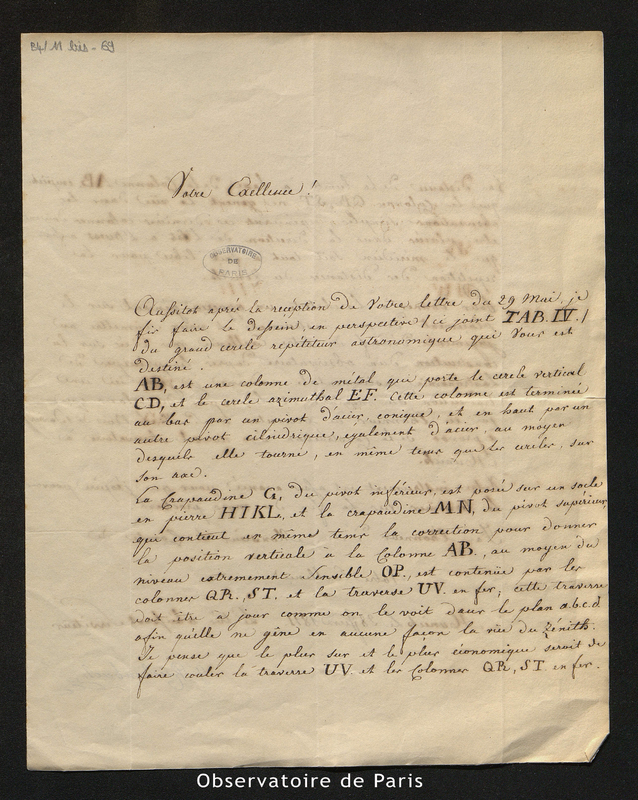 Votre Excellence!
OBSERVATOIRE
DE
PARIS
Aussitot après la reception de Votre lettre du 29 Mai, je
fis faire le dessein en perspective / ci joint TAB. IV. /
du grand cercle repetiteur astronomique qui Vous est
destiné.
AB, est une colonne de métal qui porte le cercle vertical
CD, et le cercle azimuthal EF. Cette colonne est terminée
au bas par un pivot d'acier, conique, et en haut par un
autre pivot cilindrique, également d'acier, au moyen
desquels elle tourne, en même tems que les cercles, sur
son axe.
La Crapaudine G, du pivot inférieur, est posée sur un socle
en pierre HIKL, et la crapaudine MN, du pivot supérieur,
qui contient en même tems la correction pour donner
la position verticale à la Colonne AB., au moyen du
niveau extremement sensible OP., est contenüe par les
colonnes QR, ST, et la traverse UV. en fer; cette traverse
doit être à jour comme on le voit dans le plan a.b.c.d
afin qu'elle ne gêne en aucune façon la vüe du Zénith.
Je pense que le plus sur et le plus économique seroit de
faire couler la traverse UV. et les Colonnes QR, ST en fer.
Observatoire de Paris